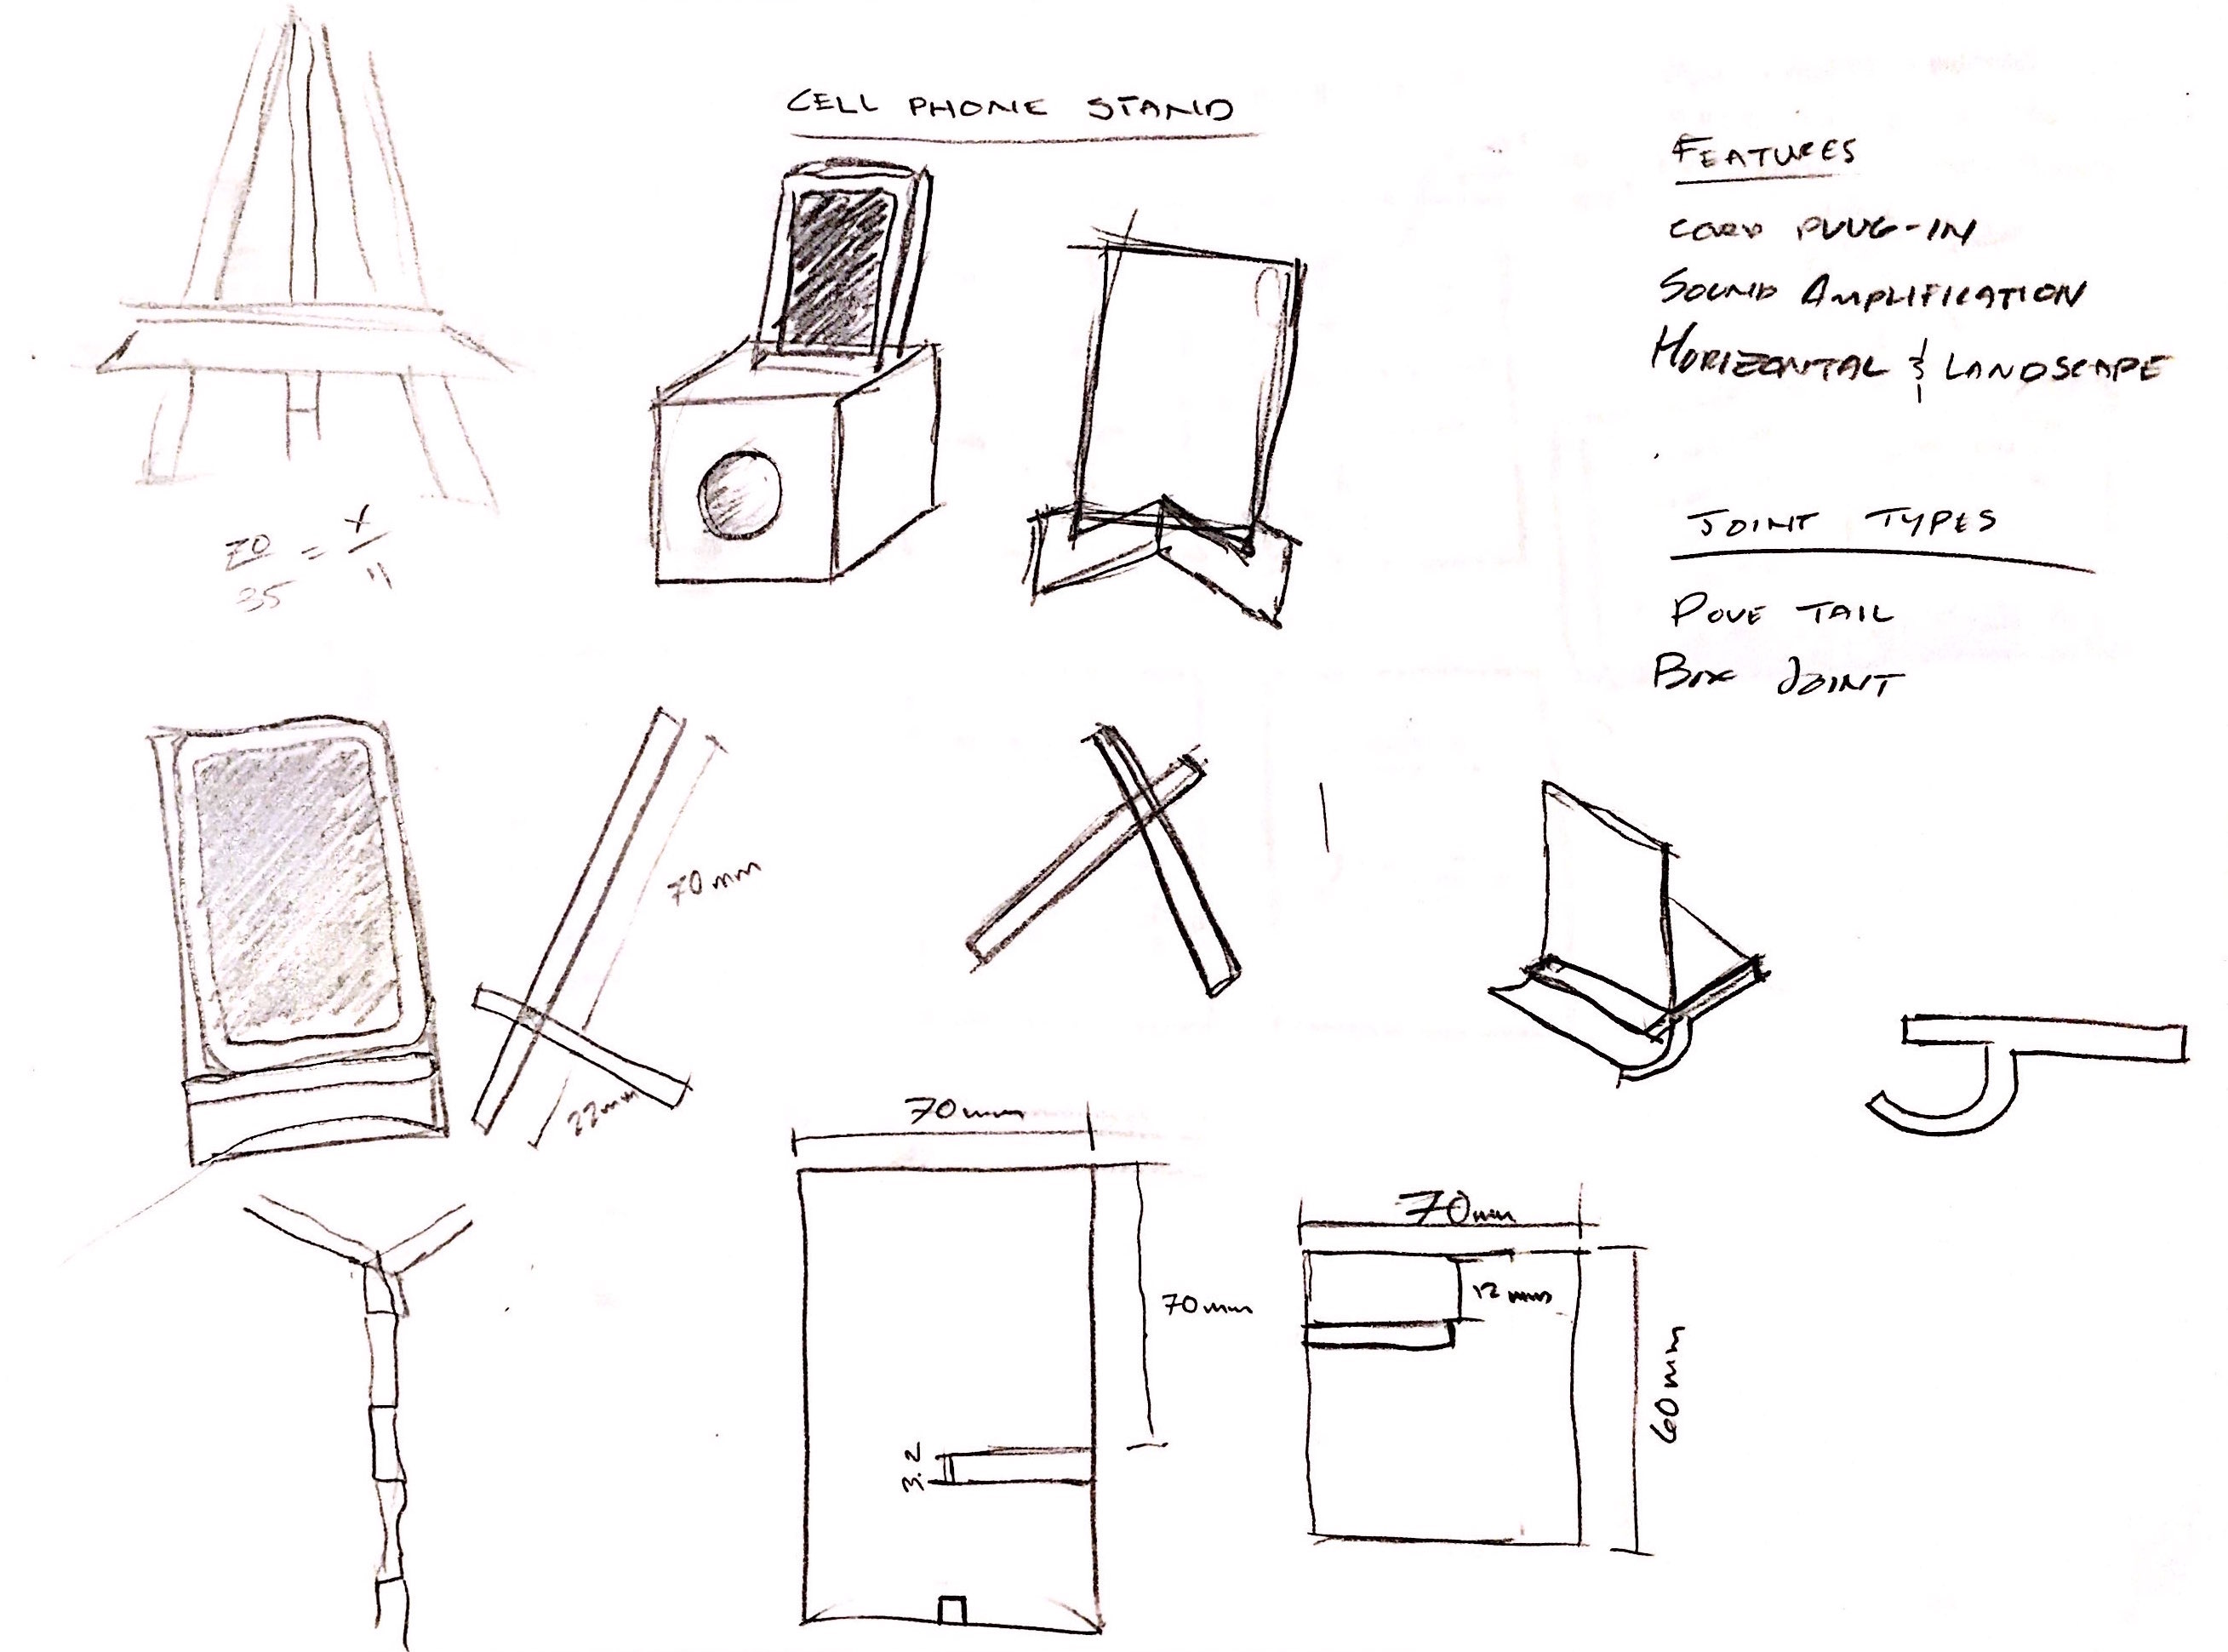 CELL PHONE STAND
FEATURES
CORD PLUG-IN
SOUND AMPLIFICATION
HORIZONTAL & LANDSCAPE
JOINT TYPES
DOVE TAIL
BOX JOINT
70/35 = x/11
70mm
22mm
70mm
70mm
3.2
70mm
12mm
60mm